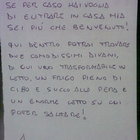 SE PER CASO HAI VOGLIA
DI ENTRARE IN CASA MIA
SEI PIÙ CHE BENVENUTO!
QUI DENTRO POTRAI TROVARE
DUE COMODISSIMI DIVANI,
DI CUI UNO TRASFORMABILE IN
LETTO, UN FRIGO PIENO DI
CIBO E SUCCO ALLA PERA E
UN ENORME LETTO SU CUI
POTER SALTARE!